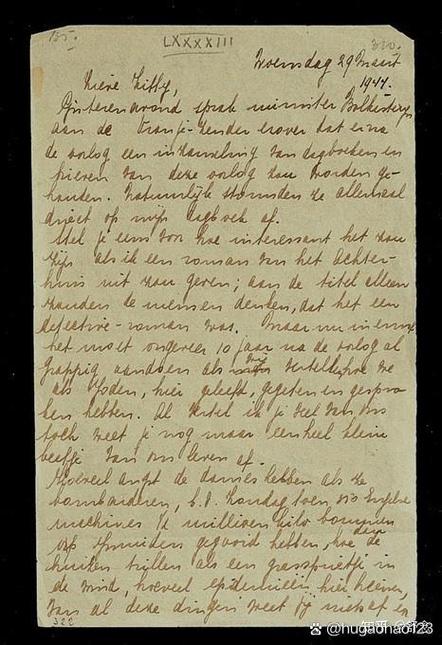 135.
LXXXXIII
330.
Woensdag 29 Maart
1944.
Lieve Kitty,
Gisterenavond sprak minister Bolkesteyn
aan de Oranje-zender erover dat er na
de oorlog een inzameling van dagboeken en
brieven van deze oorlog zou worden ge-
houden. Natuurlijk stormden ze allemaal
direct op mijn dagboek af.
Stel je eens voor hoe interessant het zou
zijn als ik een roman van het Achter-
huis uit zou geven; aan de titel alleen
zouden de mensen denken, dat het een
detective-roman was. Maar nu in ernst
het moet ongeveer 10 jaar na de oorlog al
grappig aandoen als wij vertellen hoe we
als Joden, hier geleefd, gegeten en gespro-
ken hebben. Al vertel ik je veel van ons
toch weet je nog maar een heel klein
beetje van ons leven af.
Hoeveel angst de dames hebben als ze
bombarderen, b.v. Zondag toen 350 Engelse
machines ½ millioen kilo bommen
op Ijmuiden gegooid hebben, hoe dan de
huizen trillen als een grassprietje in
de wind, hoeveel epidemieën hier heersen,
van al deze dingen weet jij niets af en
322
知乎
@hugaohao123